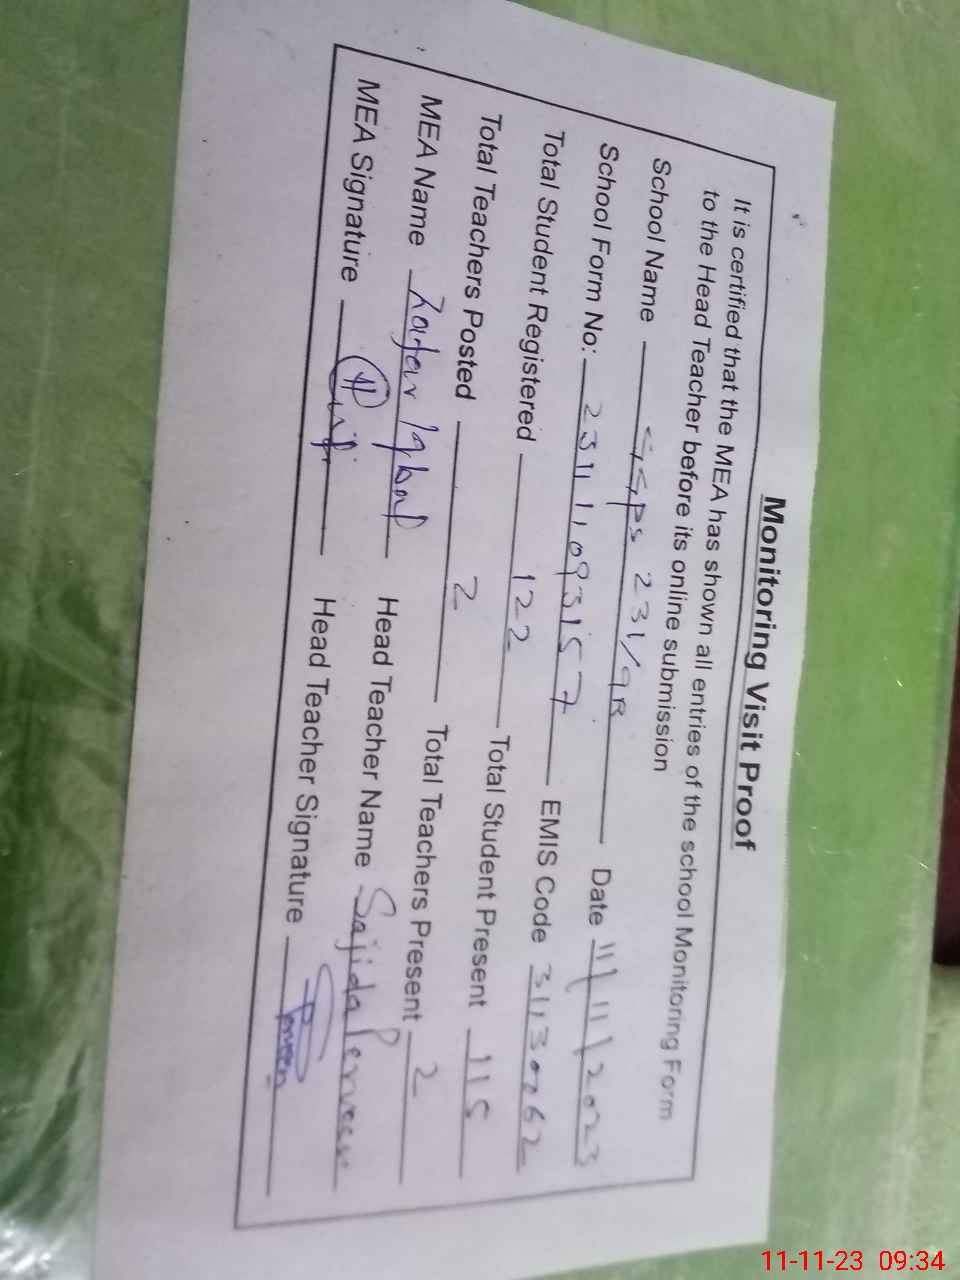 Monitoring Visit Proof
It is certified that the MEA has shown all entries of the school Monitoring Form
to the Head Teacher before its online submission
School Name GGPS 231/9R Date 11/11/2023
School Form No: 23111,093157 EMIS Code 31130062
Total Student Registered 122 Total Student Present 115
Total Teachers Posted 2 Total Teachers Present 2
MEA Name Zafar Iqbal Head Teacher Name Sajida Perveen
MEA Signature Head Teacher Signature
11-11-23 09:34